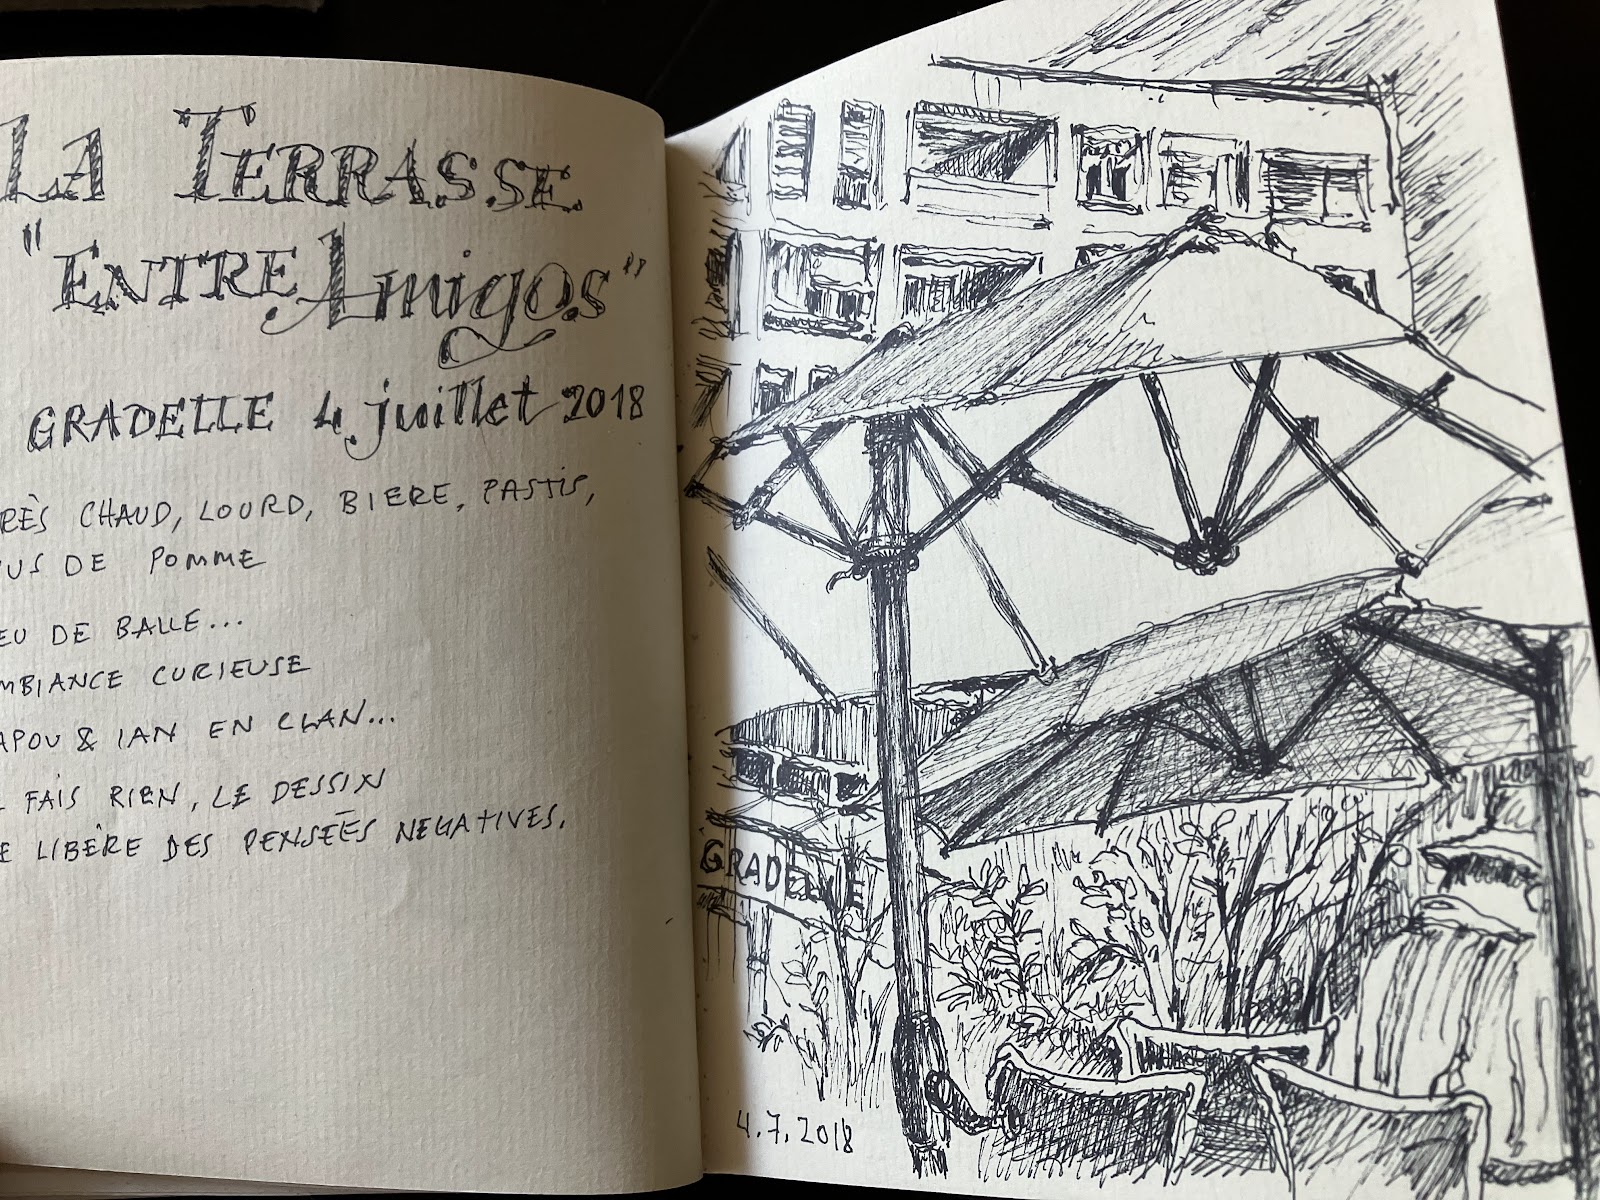 LA TERRASSE
"ENTRE Amigos"
GRADELLE 4 juillet 2018
RÈS CHAUD, LOURD, BIERE, PASTIS,
US DE POMME
EU DE BALLE...
MBIANCE CURIEUSE
APOU & IAN EN CLAN...
FAIS RIEN, LE DESSIN
E LIBÈRE DES PENSEÉS NEGATIVES.
GRADELLE
4.7.2018